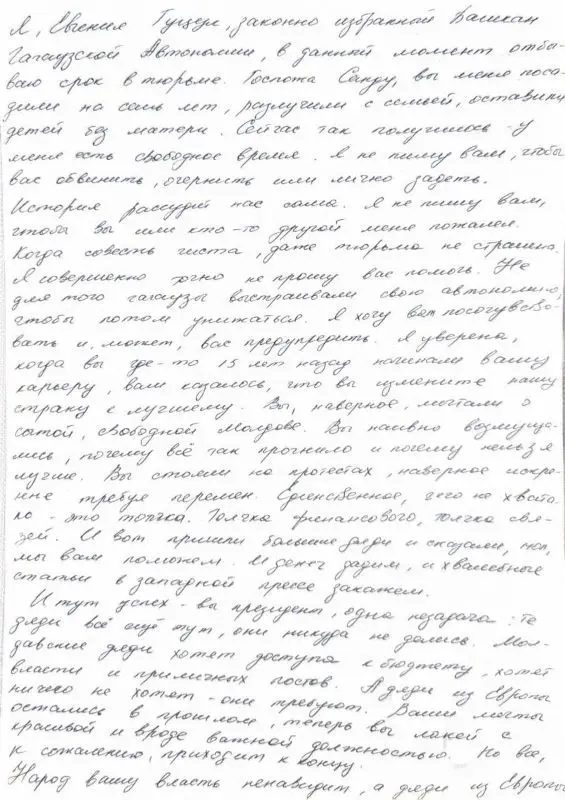 Я, Евгения Гуцул, законно избранный Башкан
Гагаузской Автономии, в данный момент отбы-
ваю срок в тюрьме. Госпожа Санду, вы меня поса-
дили на семь лет, разлучили с семьёй, оставили
детей без матери. Сейчас так получилось - у
меня есть свободное время. Я не пишу вам, чтобы
вас обвинить, очернить или лично задеть.
История рассудит нас сама. Я не пишу вам,
чтобы вы или кто-то другой меня пожалел.
Когда совесть чиста, даже тюрьма не страшна.
Я совершенно точно не прошу вас помочь. Не
для того гагаузы выстраивали свою автономию,
чтобы потом унижаться. Я хочу вам посочувство-
вать и, может, вас предупредить. Я уверена,
когда вы где-то 15 лет назад начинали вашу
карьеру, вам казалось, что вы измените нашу
страну к лучшему. Вы, наверное, мечтали о
сытой, свободной Молдове. Вы наивно возмуща-
лись, почему всё так прогнило и почему нельзя
лучше. Вы стояли на протестах, наверное искре-
нне требуя перемен. Единственное, чего не хвата-
ло - это толчка. Толчка финансового, толчка свя-
зей. И вот пришли большие дяди и сказали, мол,
мы вам поможем. И денег дадим, и хвалебные
статьи в западной прессе закажем.
И тут успех - вы президент, одна незадача: те
дяди всё ещё тут, они никуда не делись. Мол-
давские дяди хотят доступа к бюджету, хотят
власти и приличных постов. А дяди из Европы
ничего не хотят - они требуют. Ваши мечты
остались в прошлом, теперь вы лакей с
красивой и вроде важной должностью. Но все,
к сожалению, приходит к концу.
Народ вашу власть ненавидит, а дяди из Европы